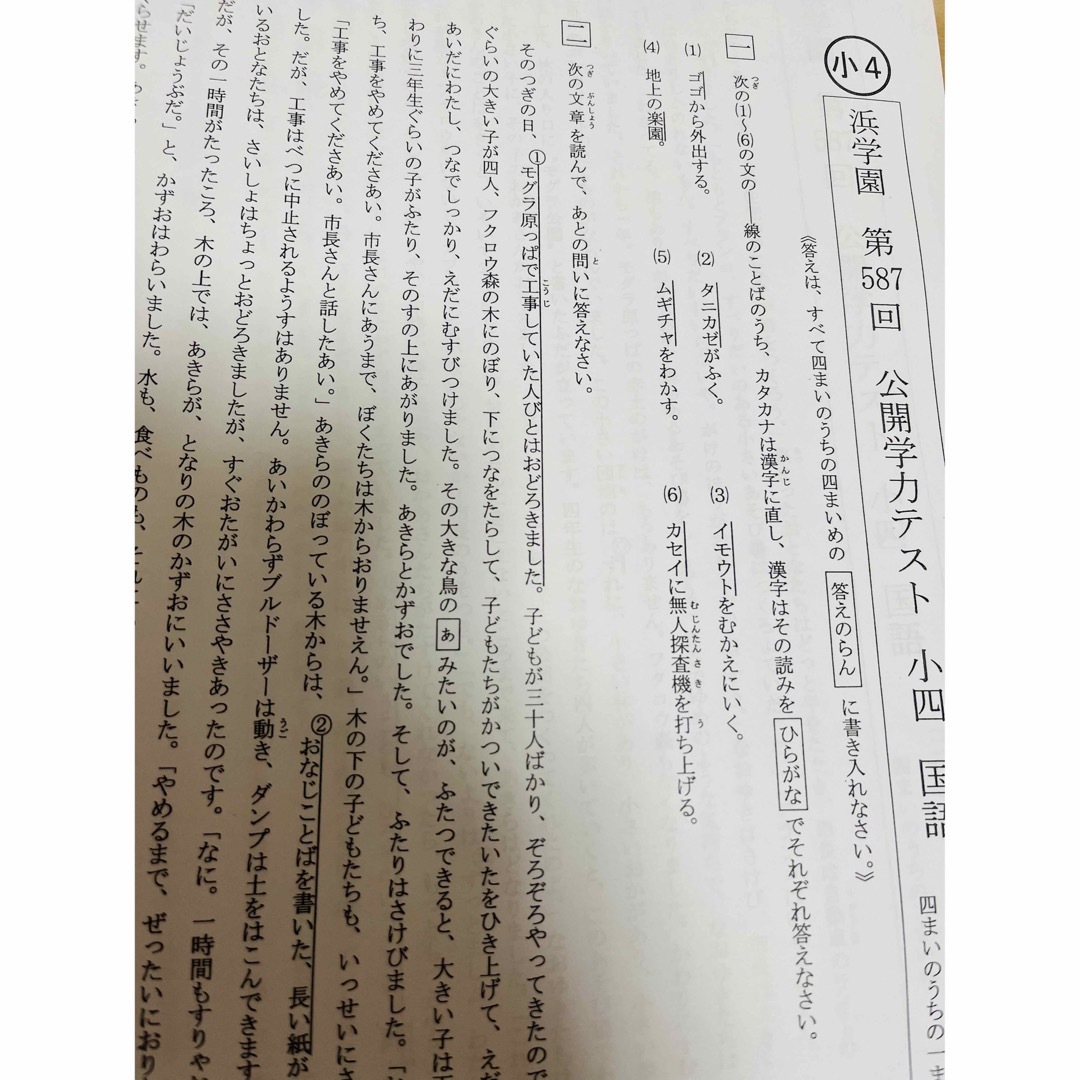 小4
浜学園 第587回 公開学力テスト 小四 国語
四まいのうちの一ま
《答えは、すべて四まいのうちの四まいめの 答えのらん に書き入れなさい。》
一 次の(1)～(6)の文の――線のことばのうち、カタカナは漢字に直し、漢字はその読みを ひらがな でそれぞれ答えなさい。
(1) ゴゴから外出する。
(2) タニカゼがふく。
(3) イモウトをむかえにいく。
(4) 地上の楽園。
(5) ムギチャをわかす。
(6) カセイに無人探査機を打ち上げる。
二 次の文章を読んで、あとの問いに答えなさい。
そのつぎの日、①モグラ原っぱで工事していた人びとはおどろきました。子どもが三十人ばかり、ぞろぞろやってきたので
ぐらいの大きい子が四人、フクロウ森の木にのぼり、下につなをたらして、子どもたちがかついできたいたをひき上げて、えだ
あいだにわたし、つなでしっかり、えだにむすびつけました。その大きな鳥の あ みたいのが、ふたつできると、大きい子は
わりに三年生ぐらいの子がふたり、そのすの上にあがりました。あきらとかずおでした。そして、ふたりはさけびました。
ち、工事をやめてくださあい。市長さんにあうまで、ぼくたちは木からおりませえん。」木の下の子どもたちも、いっせいにさ
「工事をやめてくださあい。市長さんと話したあい。」あきらののぼっている木からは、②おなじことばを書いた、長い紙が
した。だが、工事はべつに中止されるようすはありません。あいかわらずブルドーザーは動き、ダンプは土をはこんできます
いるおとなたちは、さいしょはちょっとおどろきましたが、すぐおたがいにささやきあったのです。「なに。一時間もすりゃ
だが、その一時間がたったころ、木の上では、あきらが、となりの木のかずおにいいました。「やめるまで、ぜったいにおり
「だいじょうぶだ。」と、かずおはわらいました。水も、食べものも、
らせます。